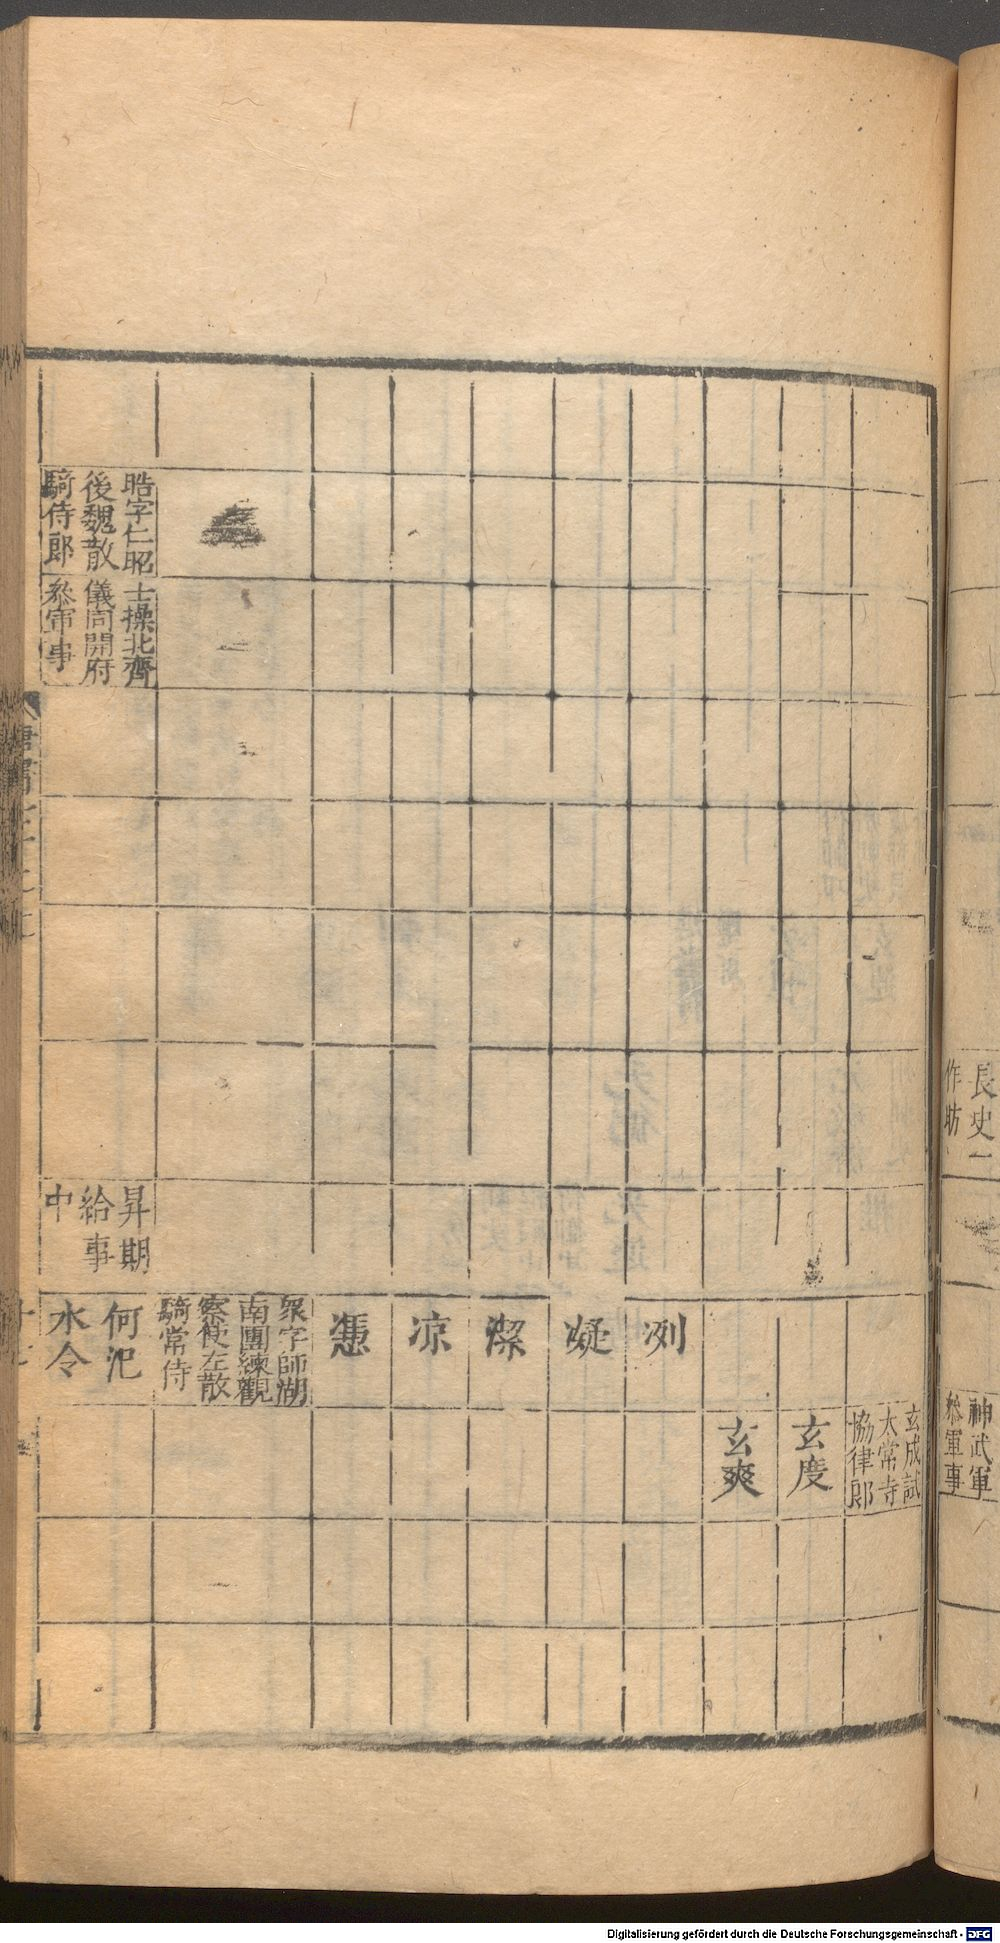 長史一
作昉
神武軍
參軍事
玄成試
太常寺
協律郎
玄度
玄爽
冽
凝
潔
涼
憑
衆字師湖
南團練觀
察使左散
騎常侍
晧字仁昭
後魏散
騎侍郎
士操北齊
儀同開府
參軍事
昇期
給事
中
何汜
水令
Digitalisierung gefördert durch die Deutsche Forschungsgemeinschaft - DFG